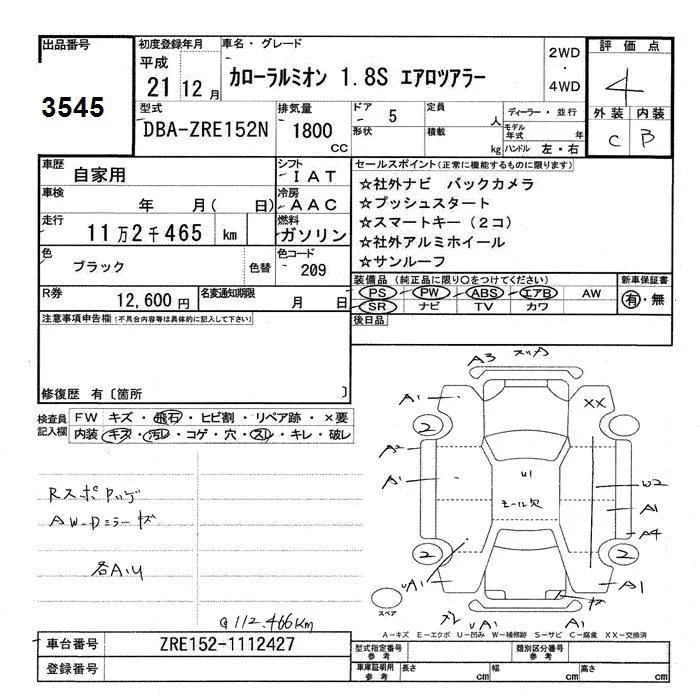 出品番号
3545
初度登録年月
平成
21 12 月
車名・グレード
カローラルミオン 1.8S エアロツアラー
2WD
・
4WD
評価点
4
外装 内装
C B
型式
DBA-ZRE152N
排気量
1800
CC
ドア 5
形状
定員
人
積載
kg
ディーラー・並行
モデル年式 年
ハンドル 左・右
車歴 自家用
シフト
IAT
車検 年 月( 日)
冷房
AAC
走行 11万2千465 km
燃料
ガソリン
色 ブラック 色替
色コード
209
R券 12,600円
名変通知期限 月 日
セールスポイント(正常に機能するものに限ります)
☆社外ナビ バックカメラ
☆プッシュスタート
☆スマートキー(2コ)
☆社外アルミホイール
☆サンルーフ
装備品 (純正品に限り○をつけてください)
PS PW ABS エアB AW
SR ナビ TV カワ
新車保証書
有・無
後日品
注意事項申告欄(不具合内容等は具体的に記入して下さい)
修復歴 有〔箇所 〕
検査員
記入欄
FW キズ・飛石・ヒビ割・リペア跡・×要
内装 キズ・汚レ・コゲ・穴・スレ・キレ・破レ
Rスポ
AW-Dミラーキズ
各A.U
Q112.466Km
A3 スリキ
A1
XX
2
2
A2
A1
U1
モール欠
W2
A1
A4
2
2
UA1
A1
スペア
UA1
A1
A-キズ E-エクボ U-凹み W-補修跡 S-サビ C-腐食 XX-交換済
車台番号 ZRE152-1112427
登録番号
型式指定番号
参考
類別区分番号
参考
車庫証明用
参考
長さ cm 幅 cm 高さ cm